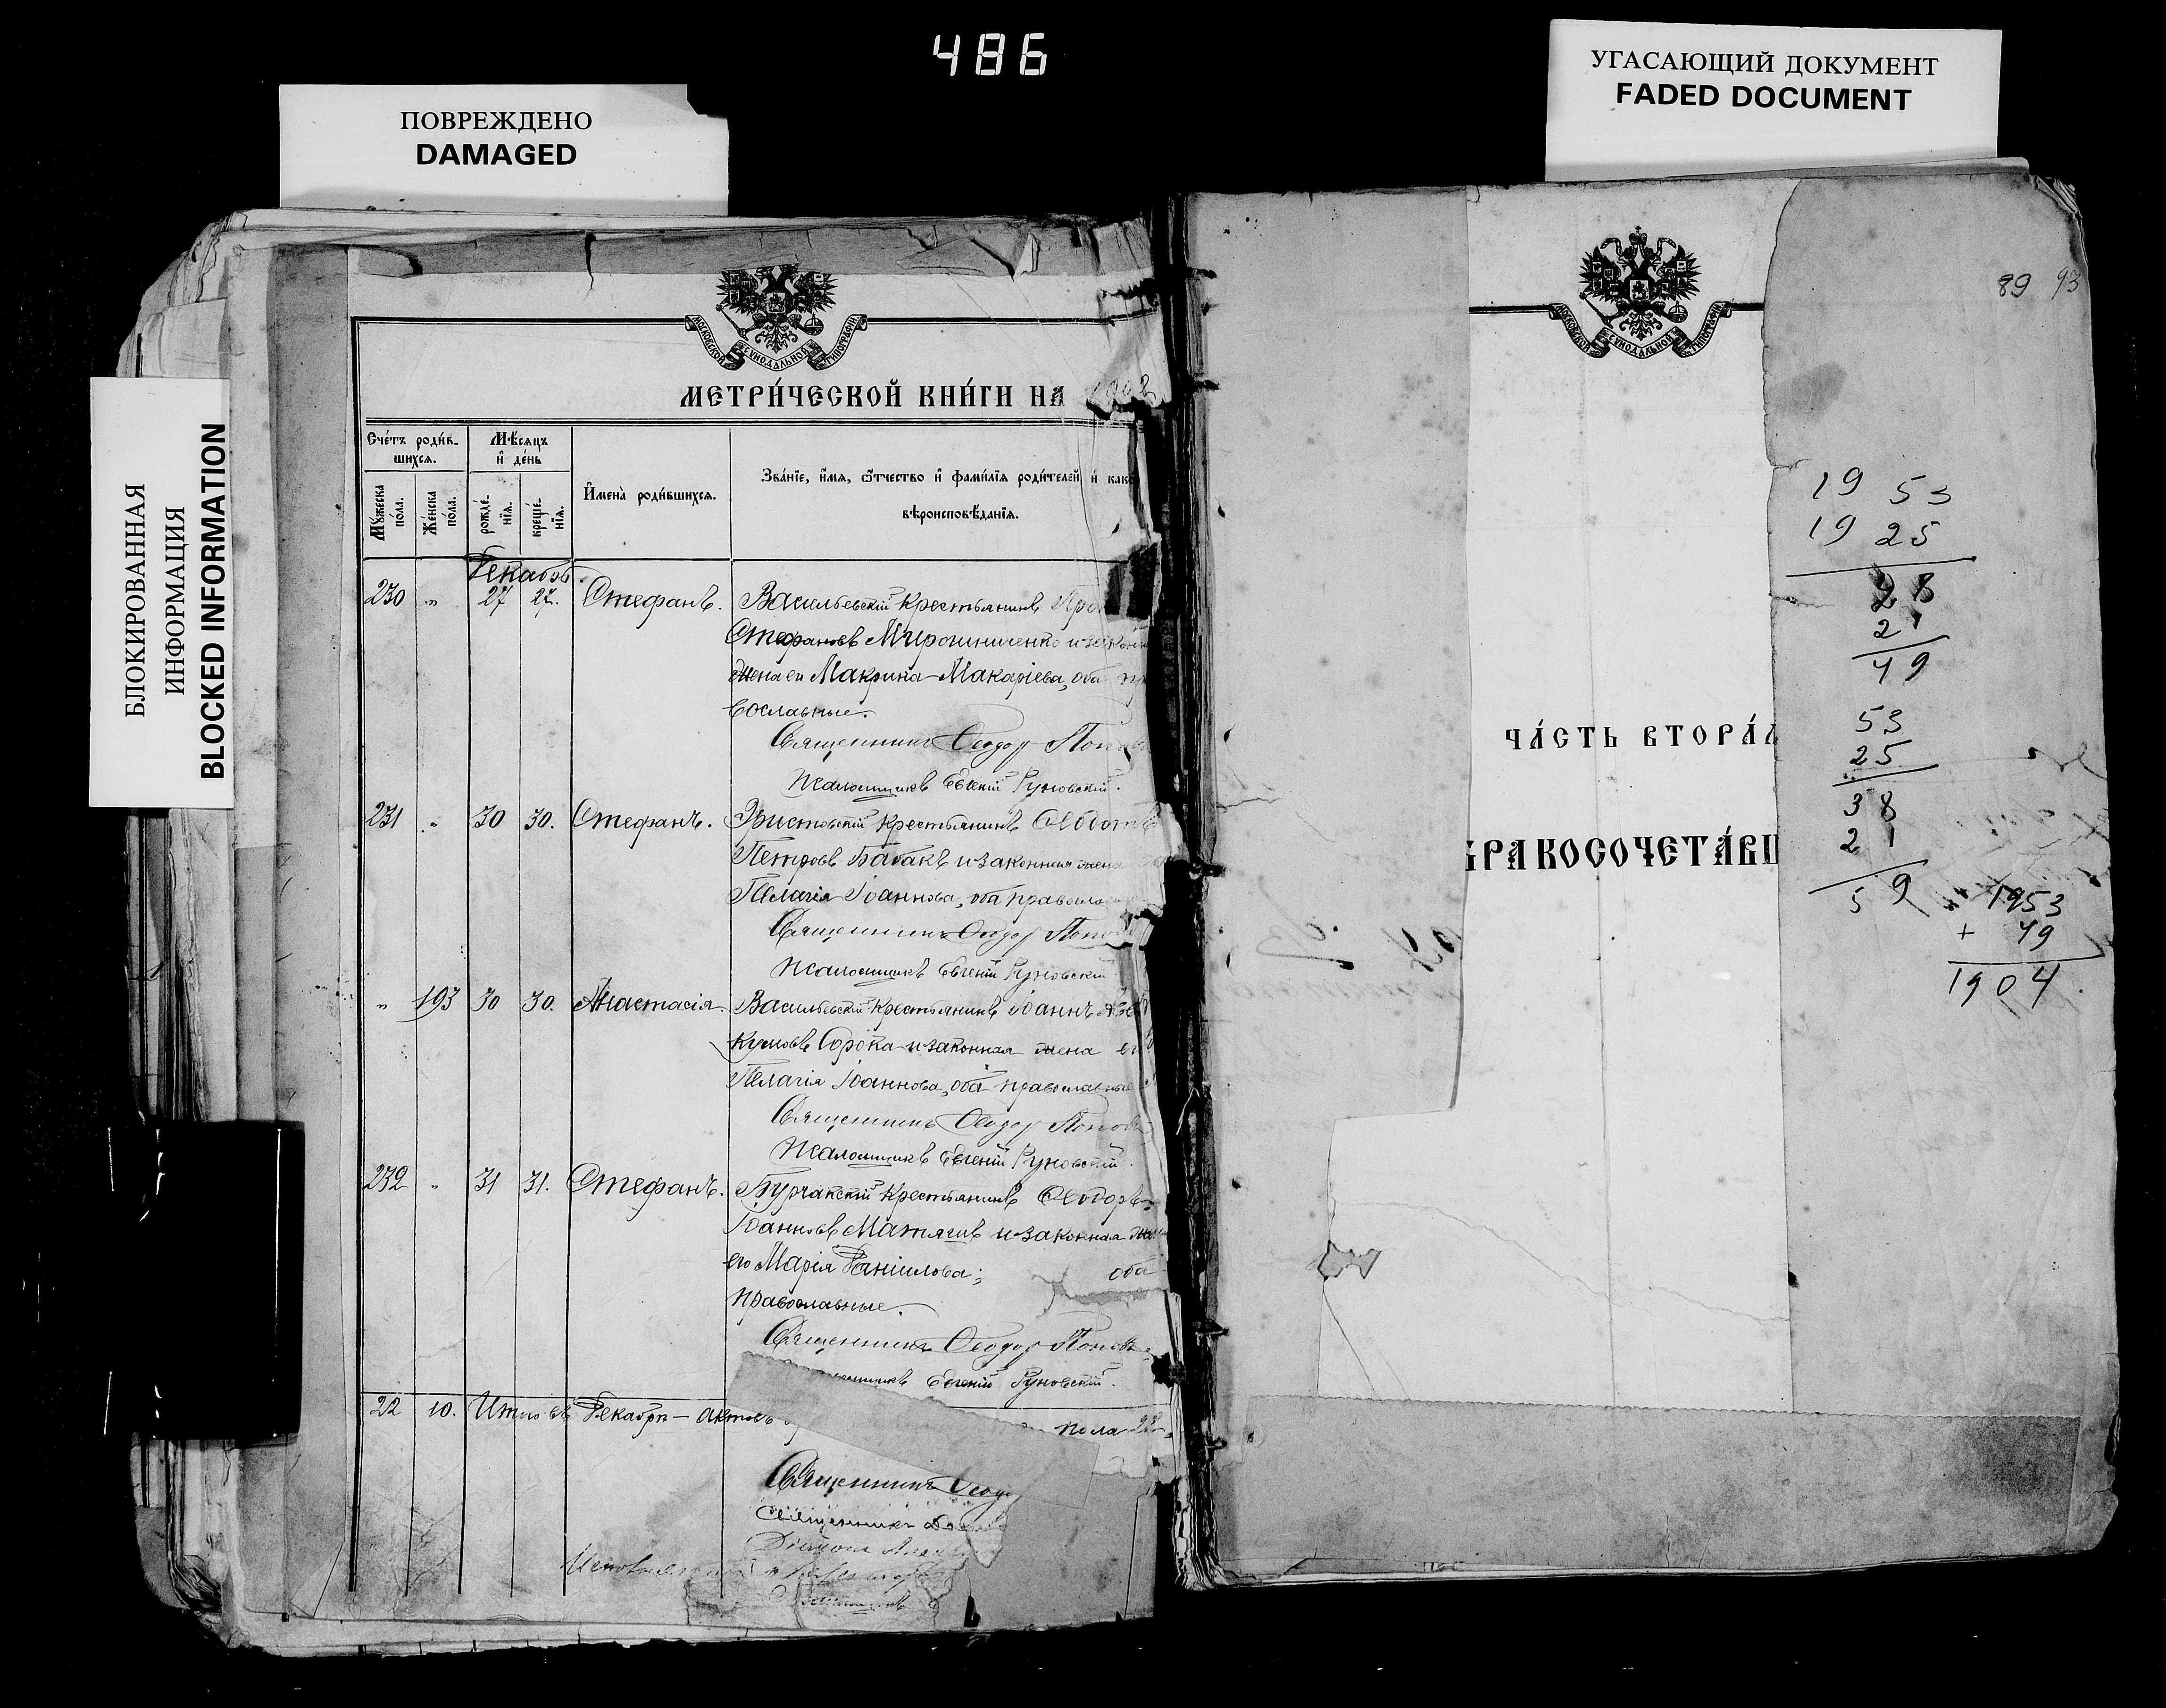 486
ПОВРЕЖДЕНО
DAMAGED
УГАСАЮЩИЙ ДОКУМЕНТ
FADED DOCUMENT
БЛОКИРОВАННАЯ
ИНФОРМАЦИЯ
BLOCKED INFORMATION
МОСКОВСКОЙ СѴНОДАЛЬНОЙ ТИПОГРАФІИ
МЕТРИ́ЧЕСКОЙ КНИ́ГИ НА 1902
Сче́тъ роди́в-
шихся.
Мѣ́сяцъ
и де́нь
Имена̀ роди́вшихся.
Зва́нїе, и́мя, ѻ́тчество и фами́лїя роди́телей, и как
вѣроисповѣ́данїя.
Мꙋ́жеска
по́ла.
Же́нска
по́ла.
рожде́-
нїя.
креще́-
нїя.
Декабрь.
230 " 27 27. Стефанъ. Васильевскій крестьянинъ
Стефановъ Мирошниченко и закон
жена его Макрина Макаріева, оба пр
вославные.
Священникъ Ѳеодор Попов
Псаломщикъ Евгеній Руновскій.
231 " 30 30. Стефанъ. Эристовскій крестьянинъ
Петровъ Бабакъ и законная жена
Пелагія Іоаннова, оба правосла
Священникъ Ѳеодор Попов
Псаломщикъ Евгеній Руновскій
" 193 30 30. Анастасія. Васильевскій крестьянинъ Іоаннъ Авва
кумовъ Сорока и законная жена его
Пелагія Іоаннова, оба православные
Священникъ Ѳеодор Попов
Псаломщикъ Евгеній Руновскій.
232 " 31 31. Стефанъ. Бурчакскій крестьянинъ Ѳеодоръ
Іоанновъ Матягинъ и законная жена
его Марія Даніилова; оба
православные.
Священникъ Ѳеодор Поповъ
Евгеній Руновскій.
22 10. Итого въ Декабрѣ — актовъ пола 22
Священникъ Ѳеодо
Священникъ
МОСКОВСКОЙ СѴНОДАЛЬНОЙ ТИПОГРАФІИ
89 93
ЧА́СТЬ ВТОРА́Я
БРАКОСОЧЕТА́ВШ
19 53
19 25
28
21
49
53
25
38
21
59
1953
+ 49
1904